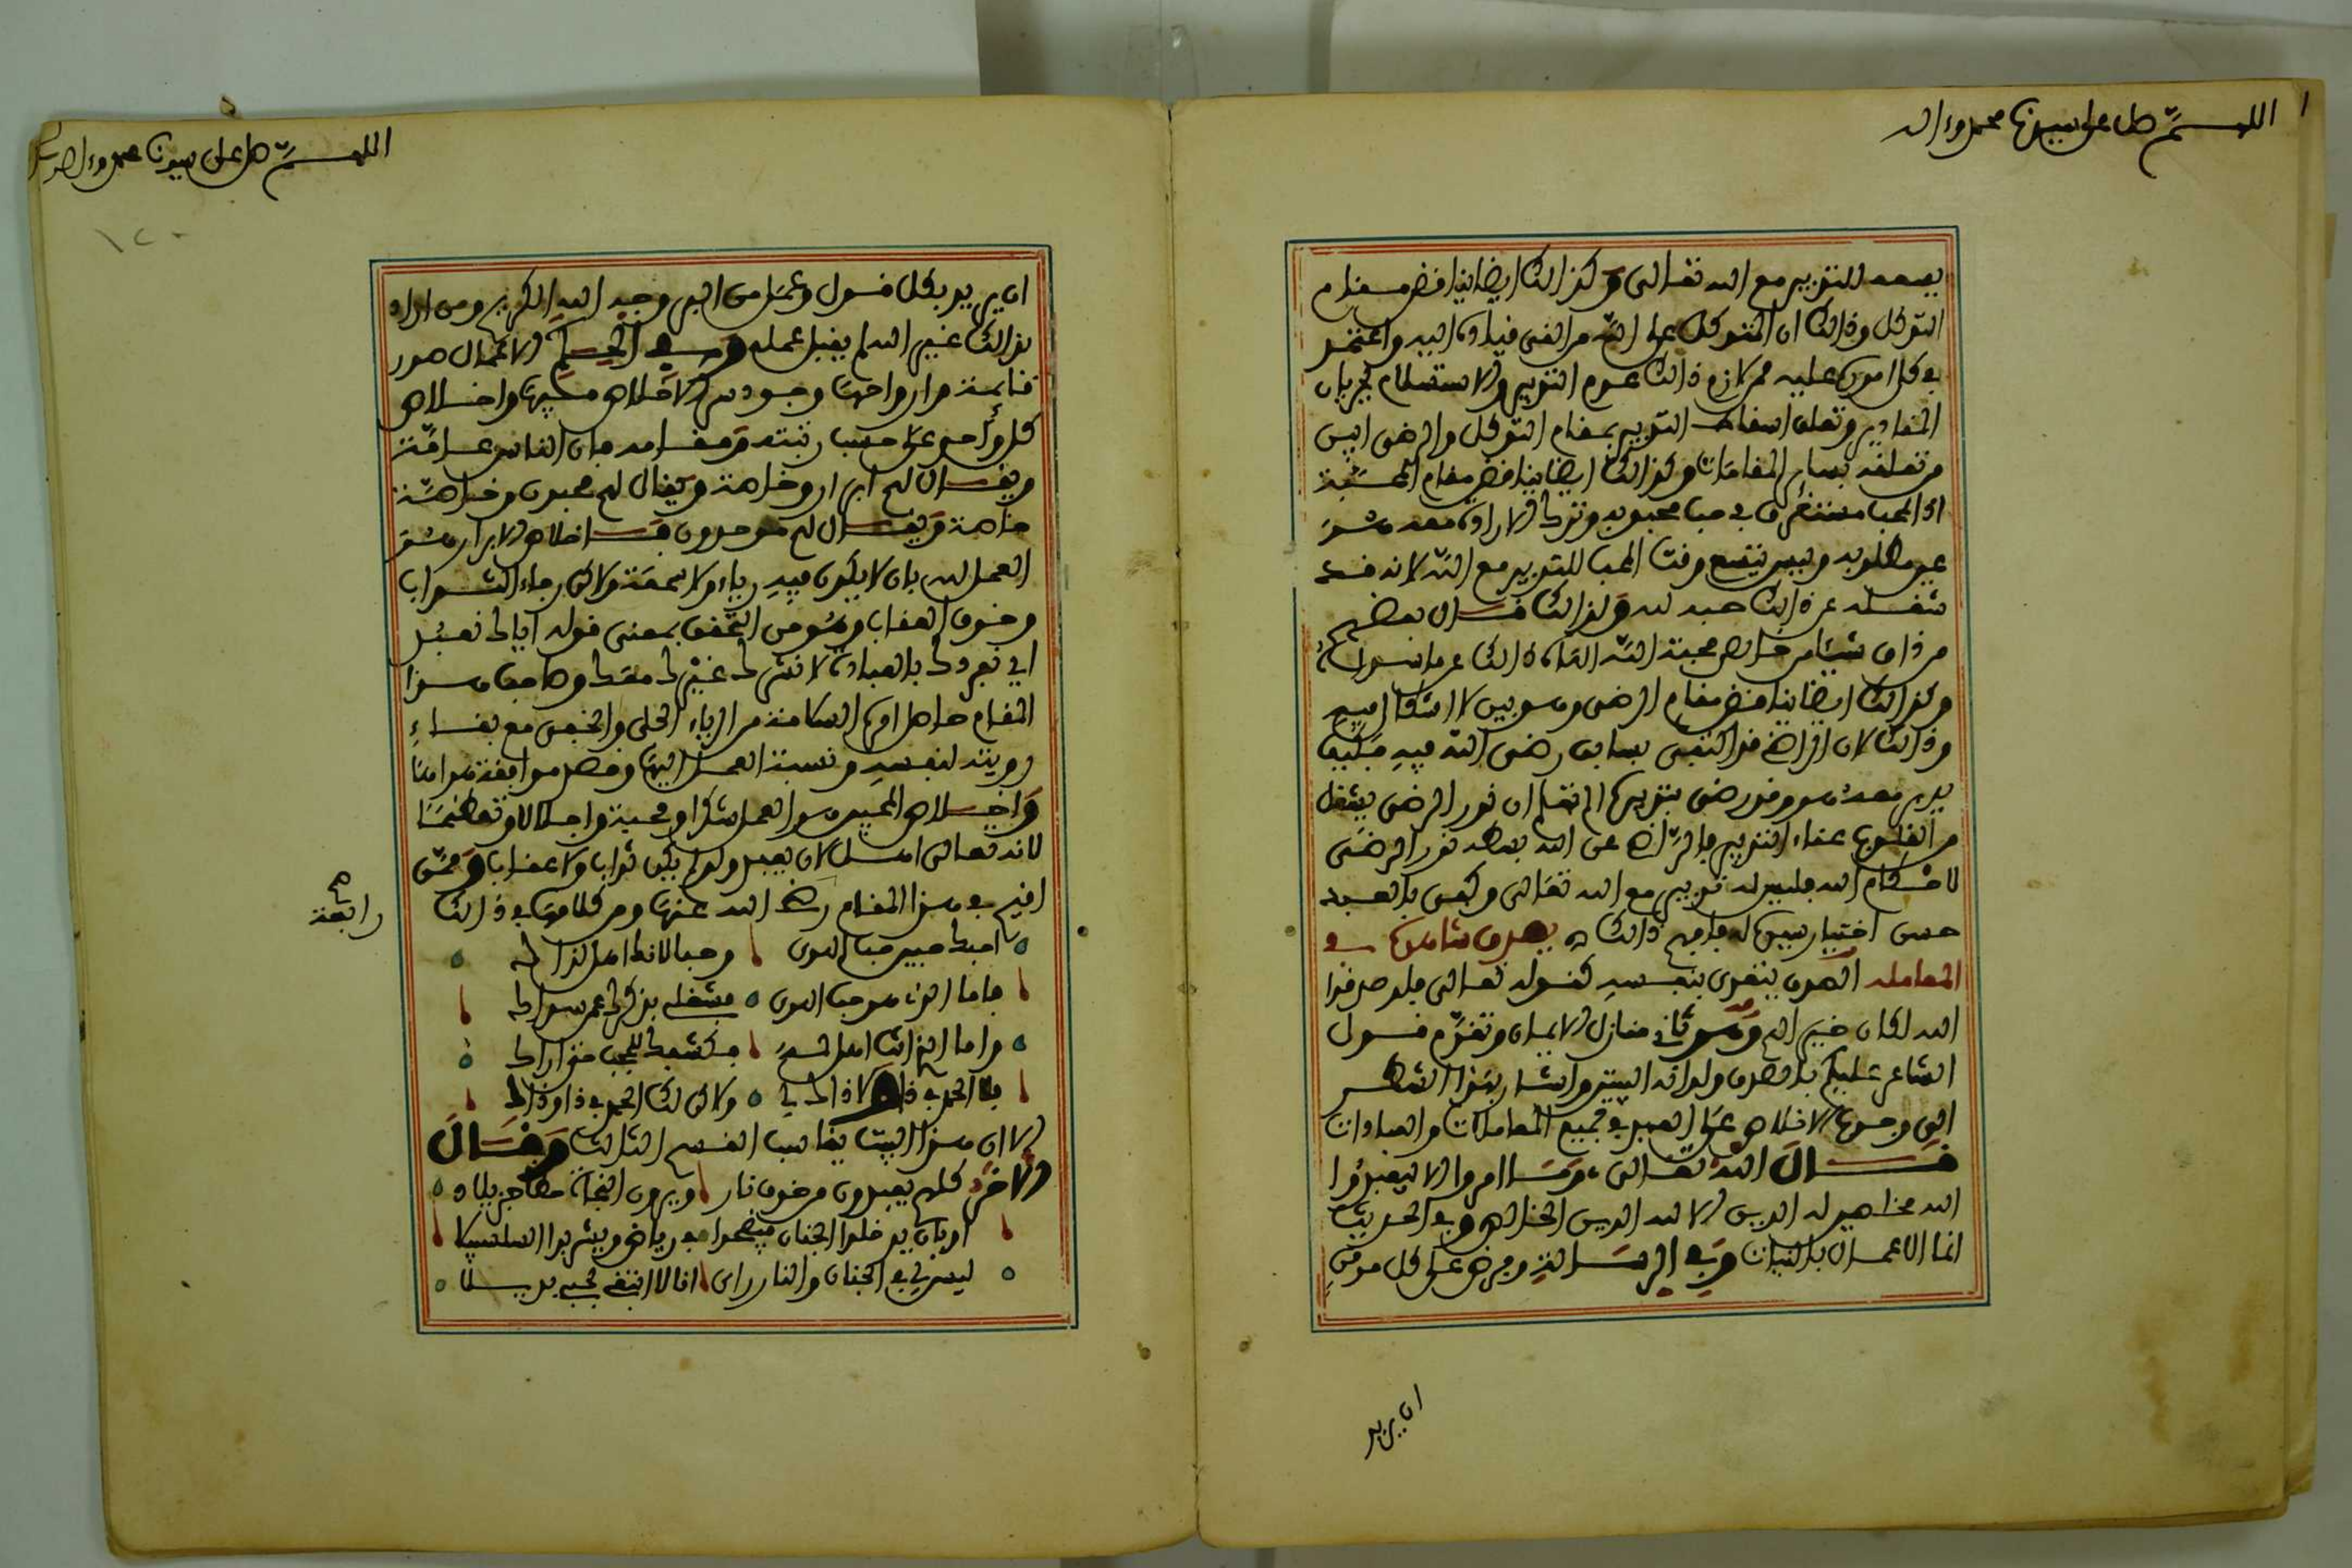 اللهم صل على سيدنا محمد وءاله
يصعد للتدبير مع الله تعالى وكذالك ايضا يناقض مقام
التوكل وذالك ان المتوكل على الله من القى قياده اليه واعتمد
في كل اموره عليه فمن لازم ذالك عدم التدبير والاستسلام لجريان
المقادير وتعلق اسقاط التدبير بمقام التوكل والرضى ابين
من تعلقه بسائر المقامات وكذالك ايضا يناقض مقام المحبة
اذ المحب مستغرق في حب محبوبه وترك الارادة معه هو
عين مطلوبه وليس يتسع وقت المحب للتدبير مع الله لانه قد
شغله عن ذالك حبه لله ولذالك قال بعضهم
من ذاق شيئا من خالص محبة الله الهاه ذالك عن ما سواه
وكذالك ايضا يناقض مقام الرضى وهو بين لا اشكال فيه
وذالك لان الراضي قد اكتفى بسابق رضى الله فيه فكيف
يدبر معه وهو قد رضي بتدبيره الم تعلم ان نور الرضى يغسل
من القلوب غثاء التدبير فالراضي عن الله بسطه نور الرضى
لاحكام الله فليس له تدبير مع الله تعالى وكفى بالعبد
حسن اختيار سيده له فافهم ذالك بصدق شاهد في
المعامله الصدق يتعدى بنفسه كقوله تعالى فلو صدقوا
الله لكان خيرا لهم وهو ثاني منازل الايمان وتقدم قول
الشاعر عليكم بالصدق ولو انه البيت واشار بهذا الشطر
الى وجوب الاخلاص على العبد في جميع المعاملات والعبادات
قال الله تعالى وما امروا الا ليعبدوا
الله مخلصين له الدين الا لله الدين الخالص وفي الحديث
انما الاعمال بالنيات وفي الرسالة وفرض على كل مومن
ان يريد
اللهم صل على سيدنا محمد وءاله
١٢٠
ان يريد بكل قول وعمل من البر وجه الله الكريم ومن اراد
بذالك غير الله لم يقبل عمله وفي الحكم الاعمال صور
قائمة وارواحها وجود سر الاخلاص فيها واخلاص
كل واحد على حسب رتبته ومقامه فان الناس عامة
ويقال لهم ابرار وخاصة ويقال لهم محبون وخاصة
خاصة ويقال لهم موحدون فاخلاص الابرار هو
العمل لله بان لا يكون فيه رياء ولا سمعة ولاكن رجاء الثواب
وخوف العقاب وهو من التحقق بمعنى قوله اياك نعبد
اي نفردك بالعبادة لا نشرك غيرك معك وصاحب هذا
المقام حاصل امره السلامة من الرياء الجلي والخفي مع بقاء
رويته لنفسه ونسبة العمل اليها وقصد موافقة هواها
واخلاص المحبين هو العمل شكرا ومحبة واجلالا وتعظيما
لانه تعالى اهل لان يعبد ولو لم يكن ثواب ولا عقاب وممن
اقيم في هذا المقام رضي الله عنها ومن كلامها في ذالك
رابعة صح
احبك حبين حب الهوى وحبا لانك اهل لذاك
فاما الذي هو حب الهوى فشغلي بذكرك عمن سواك
واما الذي انت اهل له فكشفك للحجب حتى اراك
فلا الحمد في ذا ولا ذاك لي ولاكن لك الحمد في ذا وذاك
الا ان هذا البيت يناسب القسم الثالث وقال
الاخر كلهم يعبدون من خوف نار ويرون النجاة حظا جزيلا
او بان يدخلوا الجنان فيضحوا في رياض ويشربوا السلسبيلا
ليس لي في الجنان والنار راي انا لا ابتغي بحبي بديلا